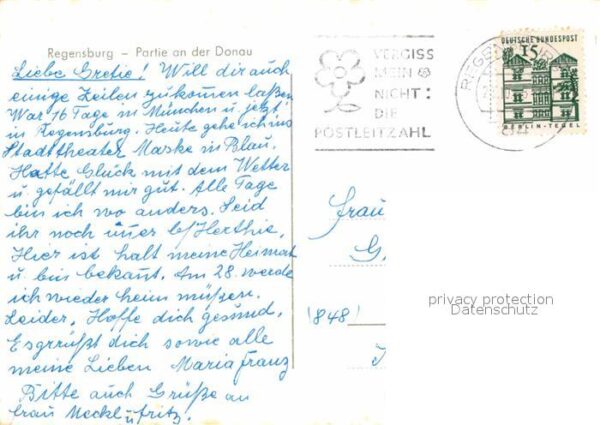 Regensburg – Partie an der Donau
Liebe Gretie! Will dir auch
einige Zeilen zukommen laßen
War 16 Tage in München u. jetzt
in Regensburg. Heute gehe ich ins
Stadttheater Maske in Blau.
Hatte Glück mit dem Wetter
u. gefällt mir gut. Alle Tage
bin ich wo anders. Seid
ihr noch über b/Herthie.
Hier ist halt meine Heimat
u. bin bekant. Am 28. werde
ich wieder heim müßen.
Leider. Hoffe dich gesund.
Es grrüßt dich sowie alle
meine Lieben Maria Franz
Bitte auch Grüße an
Frau Meckl u Fritz!
VERGISS
MEIN
NICHT:
DIE
POSTLEITZAHL
REGENSBURG
DEUTSCHE BUNDESPOST
15
BERLIN-TEGEL
Frau
G
!848!
privacy protection
Datenschutz